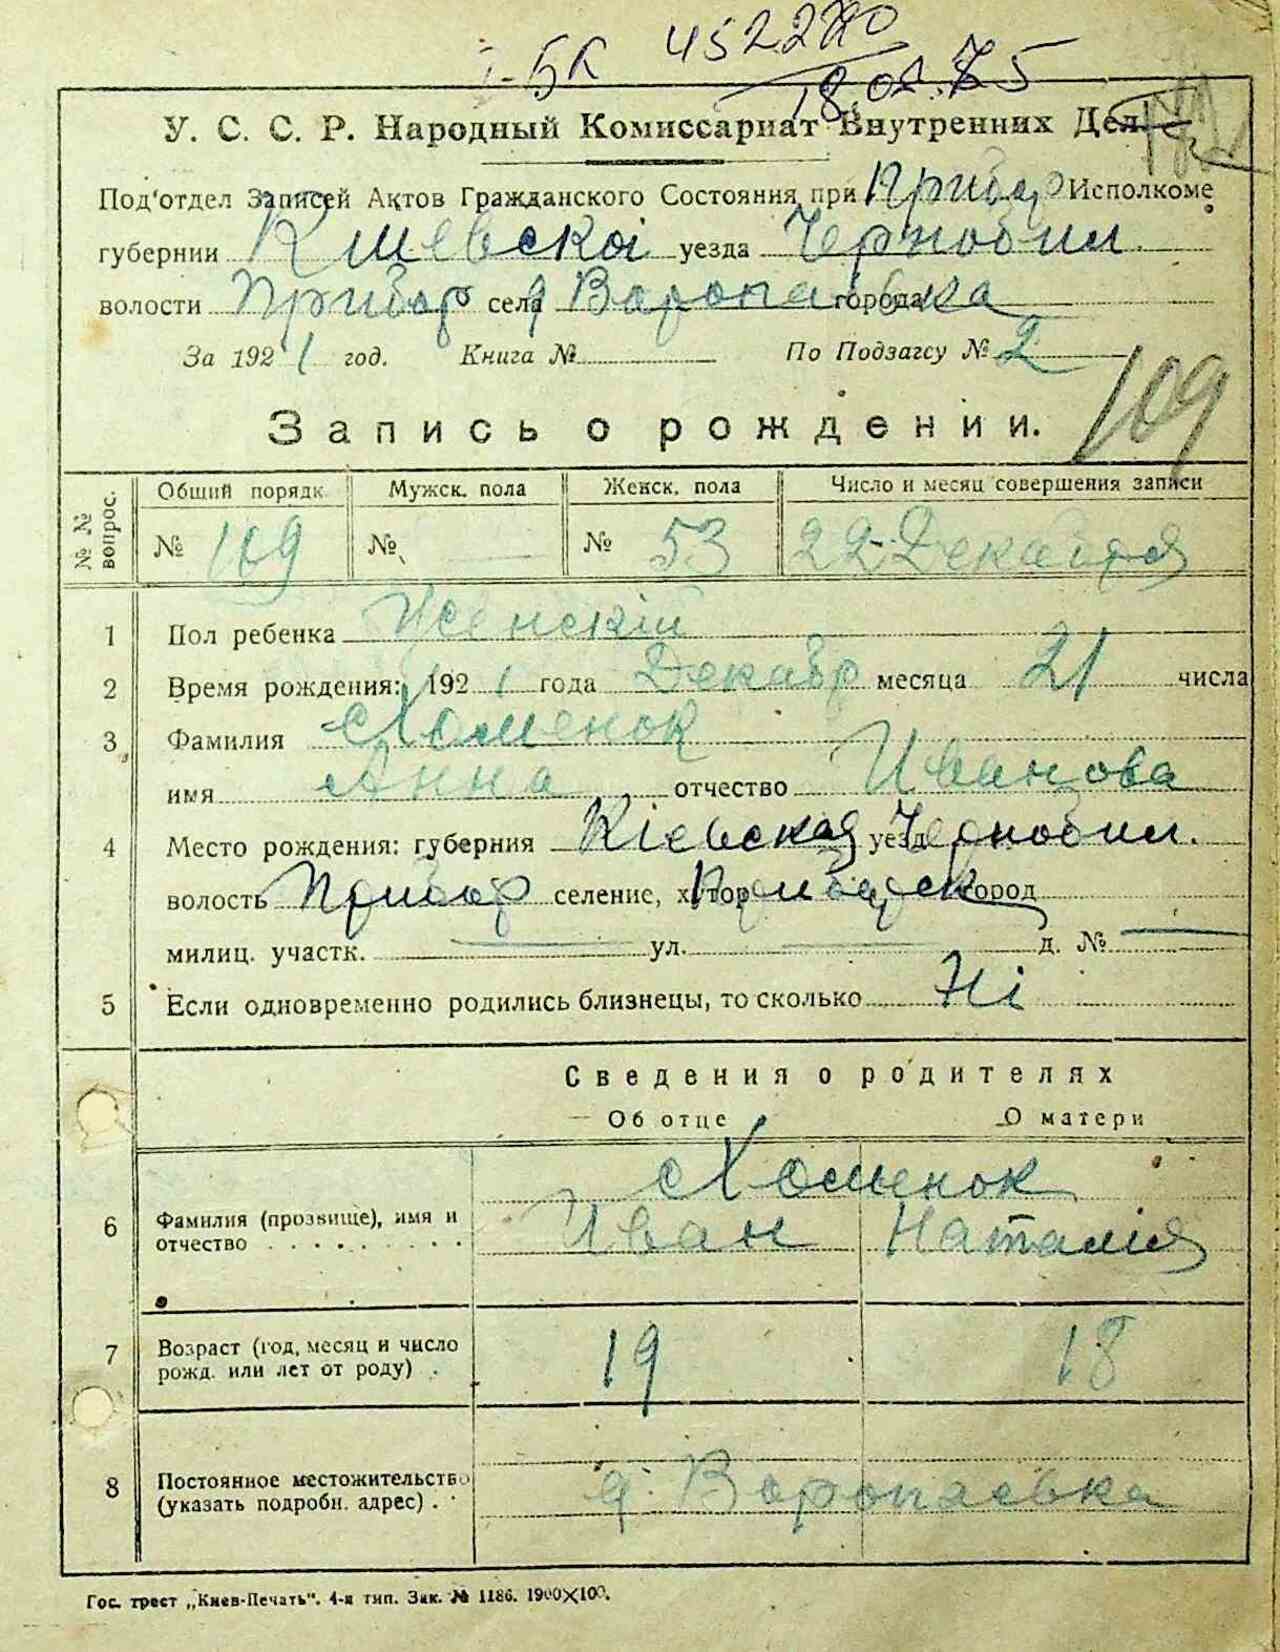 I-БК 452270
18.02.75
У. С. С. Р. Народный Комиссариат Внутренних Дел
Под'отдел Записей Актов Гражданского Состояния при Прибор Исполкоме
губернии Киевскоі уезда Чернобыл.
волости Прибор села д Воропаевка города
За 1921 год. Книга № По Подзагсу № 2
109
Запись о рождении.
№ № вопрос. Общий порядк. Мужск. пола Женск. пола Число и месяц совершения записи
№ 109 № № 53 22 Декабря
1 Пол ребенка Женскій
2 Время рождения: 1921 года Декабр месяца 21 числа
3 Фамилия Хоменок
имя Анна отчество Иванова
4 Место рождения: губерния Кіевская уезд Чернобыл.
волость Прибор селение, хутор Приборск город
милиц. участк. ул. д. №
5 Если одновременно родились близнецы, то сколько Ні
Сведения о родителях
Об отце О матери
Хоменок
6 Фамилия (прозвище), имя и отчество Иван Наталия
7 Возраст (год, месяц и число рожд. или лет от роду) 19 18
8 Постоянное местожительство (указать подробн. адрес) д. Воропаевка
Гос. трест „Киев-Печать". 4-я тип. Зак. № 1186. 1900×100.